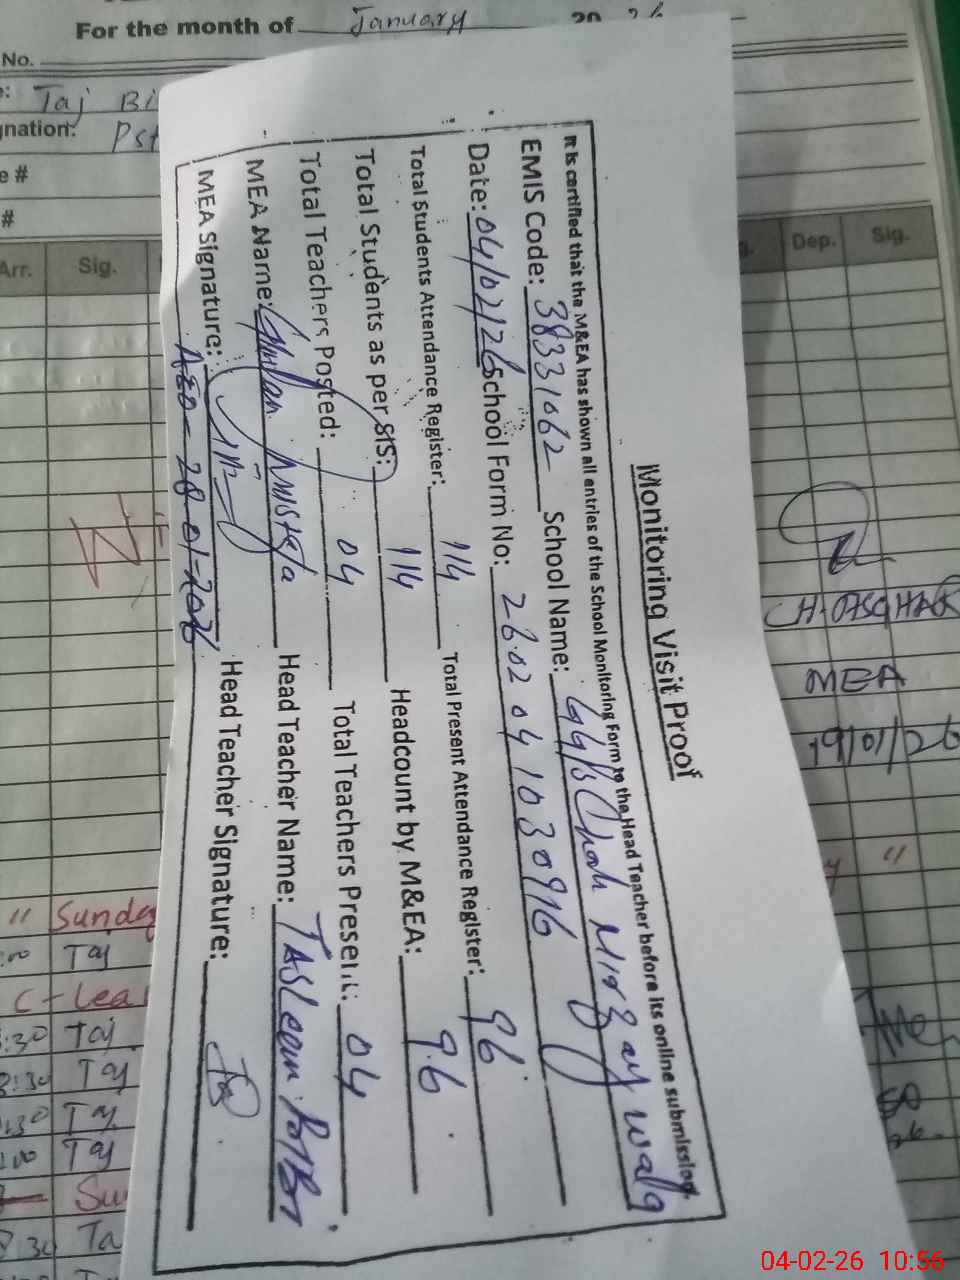 For the month of January 20 26
No.
Taj Bi
gnation: Pst
e #
#
Arr. Sig. Dep. Sig.
Monitoring Visit Proof
It is certified that the M&EA has shown all entries of the School Monitoring Form to the Head Teacher before its online submission.
EMIS Code: 38331062 School Name: GGPS Chah Mirzay wala
Date: 04/02/26 School Form No: 2602 04 10 30916
Total Students Attendance Register: 114 Total Present Attendance Register: 96
Total Students as per SIS: 114 Headcount by M&EA: 96
Total Teachers Posted: 04 Total Teachers Present: 04
MEA Name: Ghulam Mustafa Head Teacher Name: TASLeem BIBI
MEA Signature: Head Teacher Signature:
AEO - 28-01-2026
CH. ASGHAR
MEA
19/01/26
" Sunday
:00 Taj
C-Lea
:30 Taj
8:30 Taj
:30 Taj
:00 Taj
Su
8:30 Ta
04-02-26 10:56